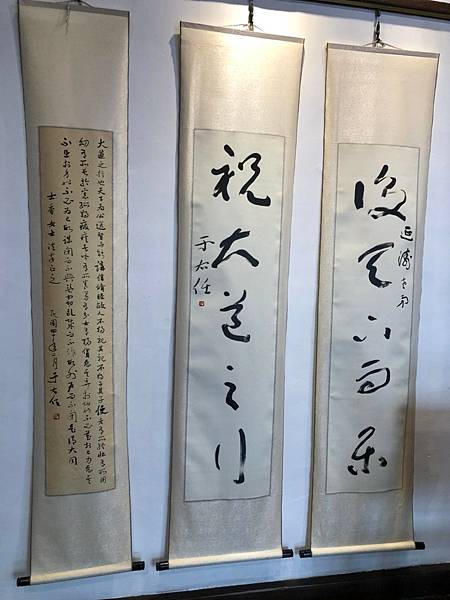 後天下而樂
延濤
祝大道之行
于右任
大道之行也天下為公選賢與能講信修睦故人不獨親其親不獨子其子使老有所終壯有所用
幼有所長矜寡孤獨廢疾者皆有所養男有分女有歸貨惡其棄於地也不必藏於己力惡其
不出於身也不必為己是故謀閉而不興盜竊亂賊而不作故外戶而不閉是謂大同
士香女士法家正之
民國四年月于右任